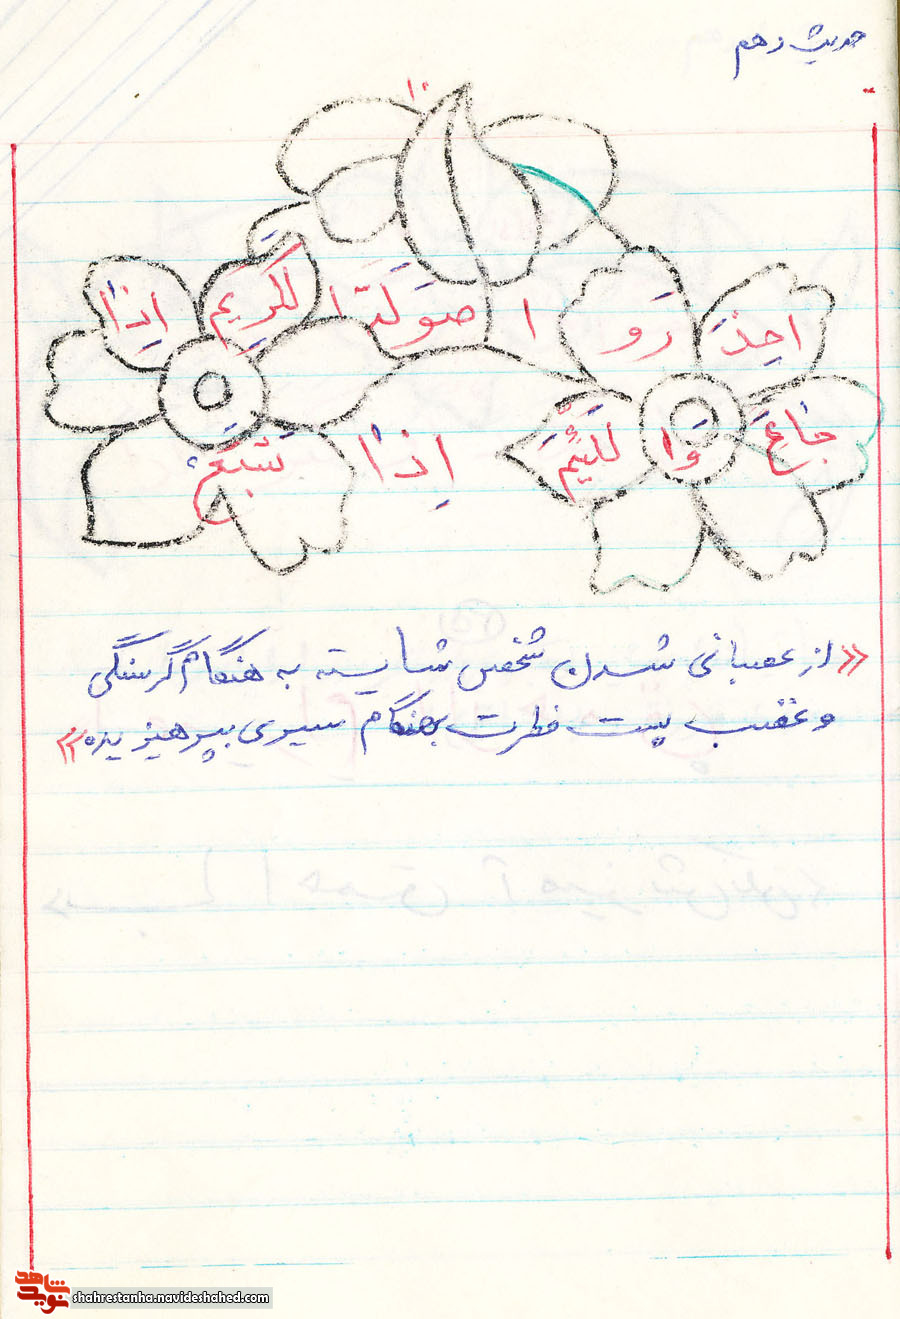 حدیث دهم
۱۰
احِذَرو ا صَولَتَ ا لکَریِم اِذا
جٰاعَ وَا للَئیَّمَ اِذا شَبَعَ
«از عصبانی شدن شخص شایسته به هنگام گرسنگی
و غضب پست فطرت بهنگام سیری بپرهیزید»
شاهد
نوید
shahrestanha.navideshahed.com